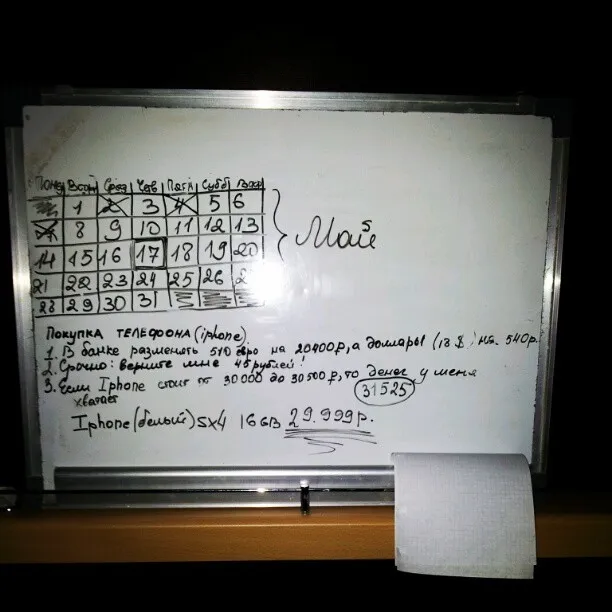 Втор Сред Чтв Пятн Субб Вос
1 2 3 4 5 6
7 8 9 10 11 12 13
14 15 16 17 18 19 20
21 22 23 24 25 26 2
28 29 30 31
Май 5
ПОКУПКА ТЕЛЕФОНА (iphone)
1. В банке разменять 510 евро на 20400р, а доллары (18 $) на 540р.
2. Срочно: верните мне 45 рублей!
3. Если Iphone стоит от 30000 до 30500р, то денег у меня
хватает 31525
Iphone (белый) 5x4 16GB 29.999р.